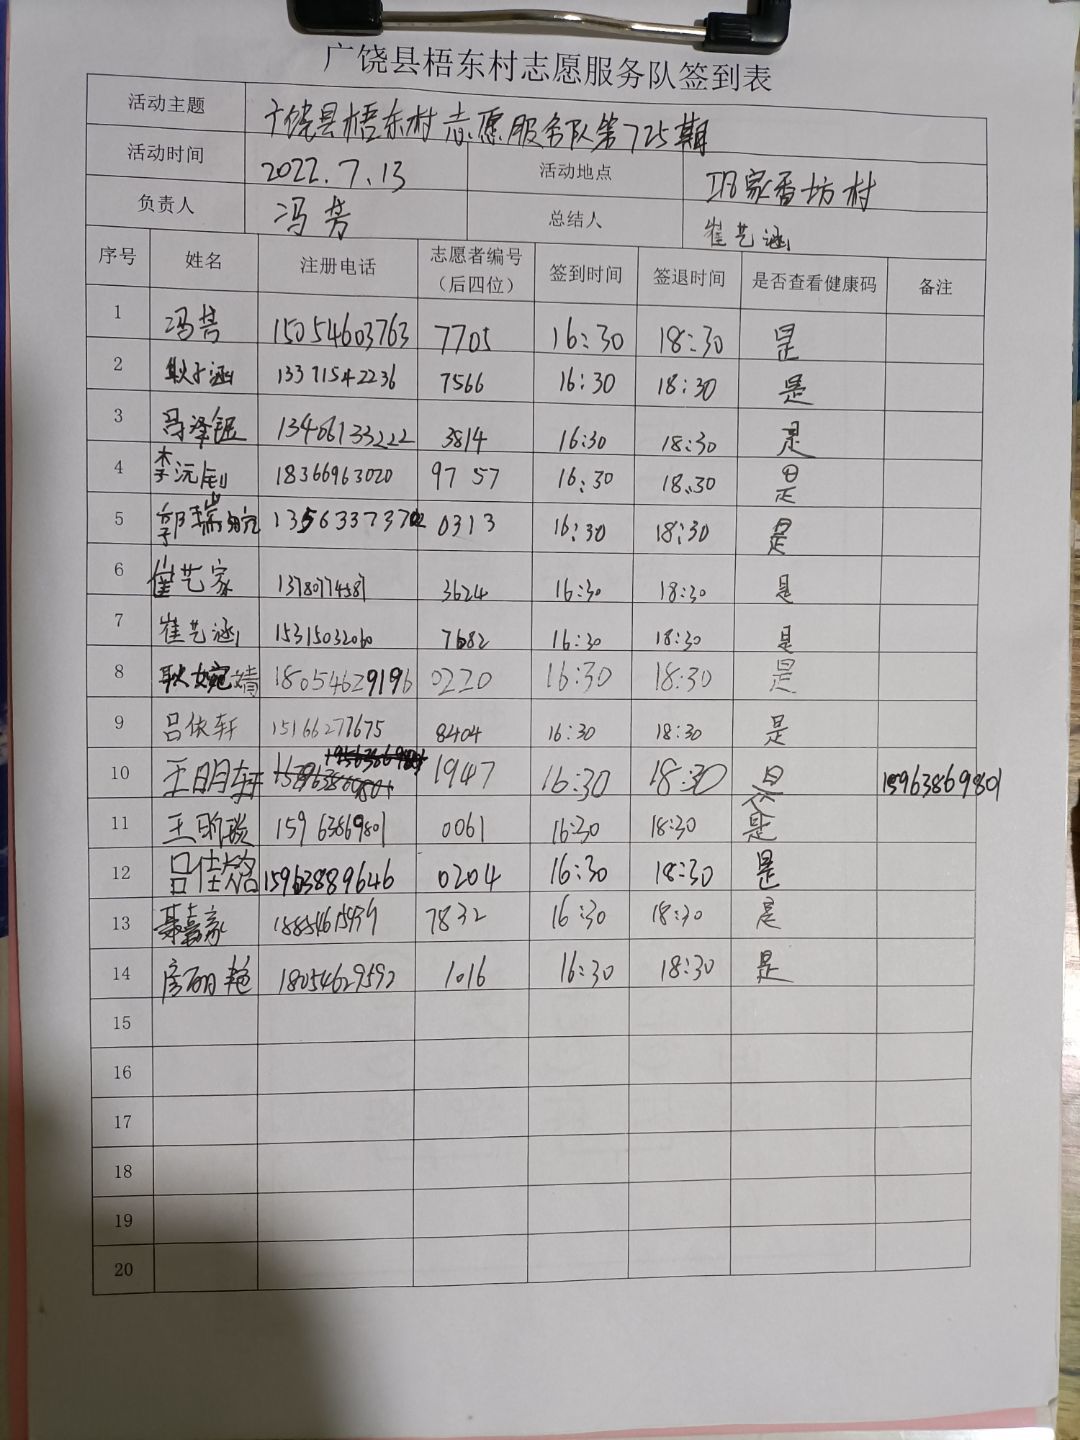 广饶县梧东村志愿服务队签到表
活动主题 广饶县梧东村志愿服务队第725期
活动时间 2022.7.13 活动地点 家香坊村
负责人 冯芳 总结人 崔艺涵
序号 姓名 注册电话 志愿者编号（后四位） 签到时间 签退时间 是否查看健康码 备注
1 冯芳 15054603763 7705 16:30 18:30 是
2 耿子涵 13371542236 7566 16:30 18:30 是
3 13466133222 3814 16:30 18:30 是
4 李沅钊 18366963020 9757 16:30 18:30 是
5 郭瑞 0313 16:30 18:30 是
6 崔艺家 13780774587 3624 16:30 18:30 是
7 崔艺涵 15315032060 7682 16:30 18:30 是
8 耿婉婧 18054629196 0220 16:30 18:30 是
9 吕依轩 15166277675 8404 16:30 18:30 是
10 王明轩 1947 16:30 18:30 是 15963869801
11 王 15963869801 0061 16:30 18:30 是
12 吕佳 15963889646 0204 16:30 18:30 是
13 7832 16:30 18:30 是
14 艳 18054629592 1016 16:30 18:30 是
15
16
17
18
19
20